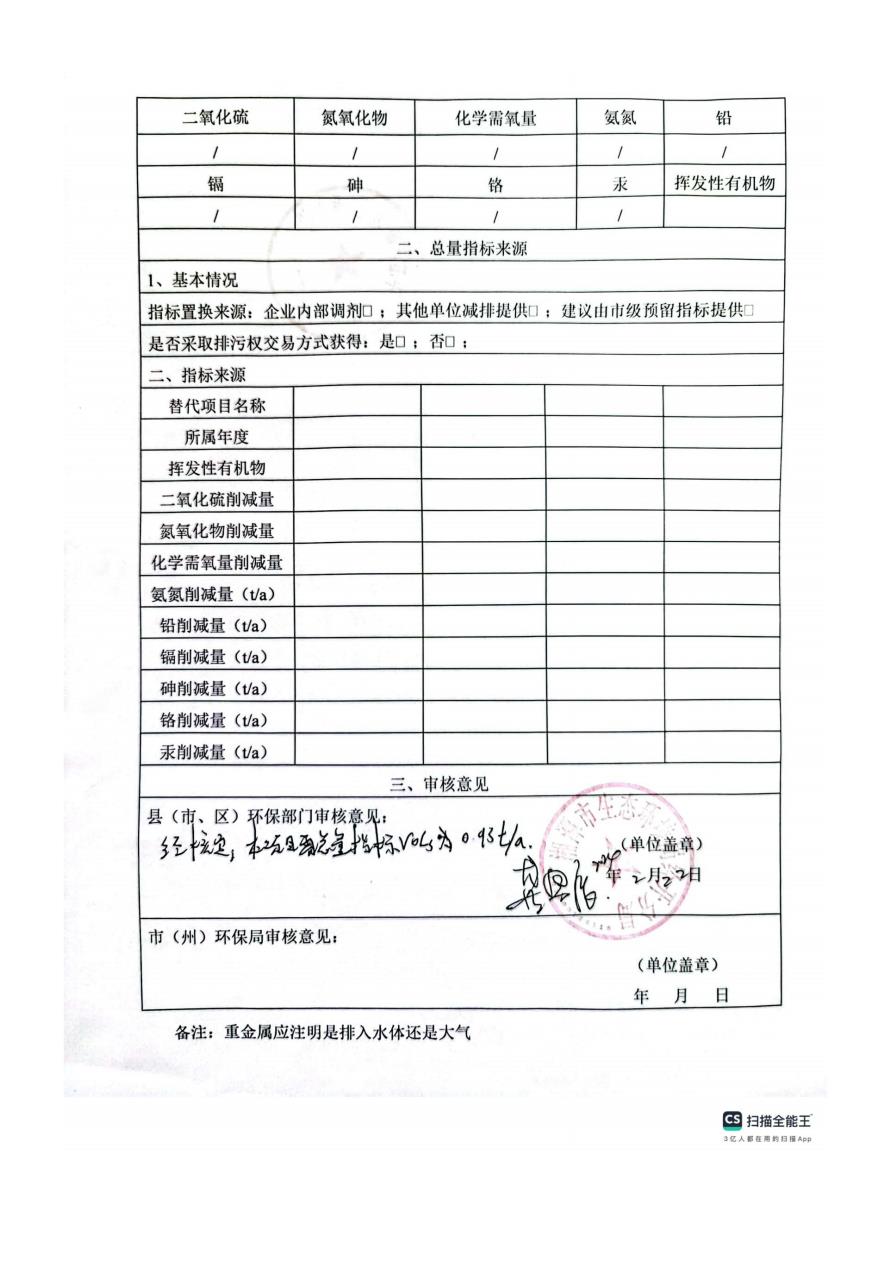 二氧化硫 氮氧化物 化学需氧量 氨氮 铅
/ / / / /
镉 砷 铬 汞 挥发性有机物
/ / / /
二、总量指标来源
1、基本情况
指标置换来源：企业内部调剂□；其他单位减排提供□；建议由市级预留指标提供□
是否采取排污权交易方式获得：是□；否□；
二、指标来源
替代项目名称
所属年度
挥发性有机物
二氧化硫削减量
氮氧化物削减量
化学需氧量削减量
氨氮削减量（t/a）
铅削减量（t/a）
镉削减量（t/a）
砷削减量（t/a）
铬削减量（t/a）
汞削减量（t/a）
三、审核意见
县（市、区）环保部门审核意见：
经核定，本项目需总量指标VOCs为0.95t/a.
（单位盖章）
年2月22日
市（州）环保局审核意见：
（单位盖章）
年 月 日
备注：重金属应注明是排入水体还是大气
CS 扫描全能王
3亿人都在用的扫描App